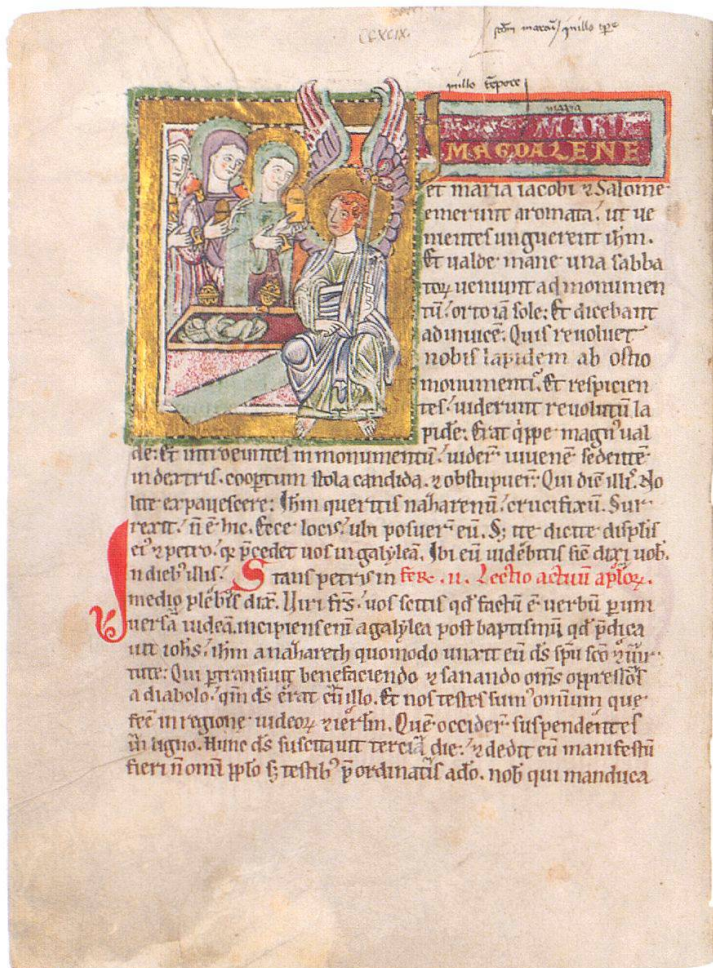 CCXCIX.
illo
maria
MARIA
MAGDALENE
et maria iacobi ⁊ Salome
emerunt aromata. ut ue
nientes unguerent ihm.
Et ualde mane una sabba
toꝝ ueniunt ad monumen
tū. orto iā sole. Et dicebant
adinuicē. Quis reuoluet
nobis lapidem ab ostio
monumenti. Et respicien
tes. uiderunt reuolutū la
pidē. Erat q̇ppe magn᷒ ual
de. Et introeuntes in monumentū. uider̄ iuuenē sedentē
in dextris. coopertum stola candida. ⁊ obstupuer̄. Qui dic̄ illis. No
lite expauescere. Ihm queritis nazarenū. crucifixū. Sur
rexit. n̄ ē hic. Ecce locus. ubi posuer̄ eū. Sꝫ ite dicite discip̄lis
ei᷒ ⁊ petro. qꝛ p̄cedet uos in galyleā. Ibi eū uidebitis sic̄ dixi uob.
In dieb᷒ illis. Stans petrus in fer. .ii. Lectio actuū apl̄oꝝ.
medio plebis dix̄. Uiri frs̄. uos scitis qd̄ factū ē uerbū ꝑ uni
uersā iudeā. incipiens eni a galylea post baptismū qd̄ p̄dica
uit ioh̄s. ihm a nazareth quomodo unxit eū ds̄ sp̄u sc̄o ⁊ uir
tute. Qui ꝑtransiuit benefaciendo ⁊ sanando om̄s oppressos
a diabolo. qm̄ ds̄ erat cū illo. Et nos testes sum᷒ omnium que
fec̄ in regione iudeoꝝ ⁊ ierlm̄. Quē occider̄ suspendentes
in ligno. Hunc ds̄ suscitauit tercia die. ⁊ dedit eū manifestū
fieri n̄ omi pplo sꝫ testib᷒ p̄ordinatis a dō. nob̄ qui manduca